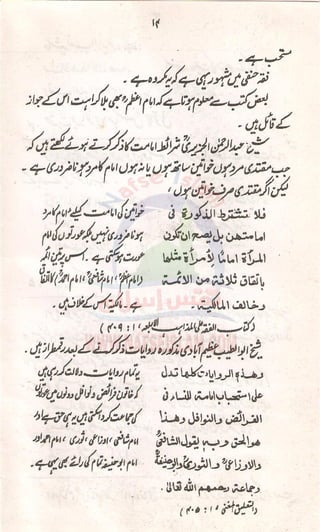 ۱۴
مستحب ہے۔
فقہ حنفی میں مشہور یہی ہے کہ یہ مکروہ ہے۔
بعض کتب سے معلوم ہوتا ہے کہ امام اعظمؒ بھی بلا کراہت اس کے جواز
کے قائل ہیں۔
شیخ عبدالرحمٰن الجزیری شرائط امامت کا ذکر کرتے ہوئے لکھتے ہیں کہ
جب مقتدی مرد ہوں خواتین ساتھ ہوں یا نہ ہوں امام کا مرد ہونا ضروری ہے۔
لیکن اگر مقتدی صرف خواتین ہوں،
فلا تشترط الذكورة فى
امامتهن بل يصح ان تكون
المرأة امامًا لامرأة مثلها
باتفاق ثلاثة من الائمة
وخالف المالكية۔
خواتین کی امامت کیلئے امام کا مرد
ہونا ضروری نہیں بلکہ عورتوں کی امام
عورت ہو سکتی ہے۔ اس پر تین آئمہ
(امام اعظمؒ، امام شافعیؒ، امام احمدؒ) کا اتفاق
ہے۔ مالکیہ اس کے خلاف ہیں۔
(کتاب الفقہ علی المذاہب الاربعہ ۱ : ۴۰۹)
شیخ ابوالطیب عظیم آبادی مذکورہ روایات ذکر کرنے کے بعد رقمطراز ہیں۔
وهذه الروايات كلها تدل
على استحباب امامة للنساء فى
الفرائض والنوافل وهذا
هوالحق وبه يقول الشافعى
والاوزاعى والثورى وابوحنيفة
وجماعة رحمهم الله تعالى۔
یہ تمام روایات دلالت کر رہی ہیں
کہ خاتون فرائض و نوافل دونوں میں عورتوں
کی جماعت کرا سکتی ہیں یہی حق ہے اور
امام شافعی، اوزاعی، ثوری، امام احمد اور
ابو حنیفہ تمام کی رائے بھی یہی ہے۔
(التعلیق المغنی ۱ : ۴۰۵)